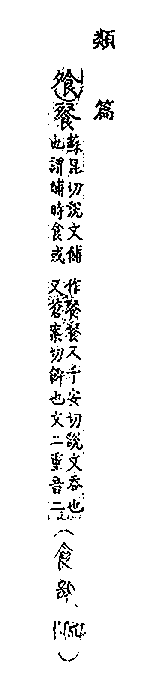 類篇
飱餐
蘇昆切說文餔
也謂晡時食或
作餐餐又千安切說文吞也
又蒼案切餅也文二重音二
(食部)